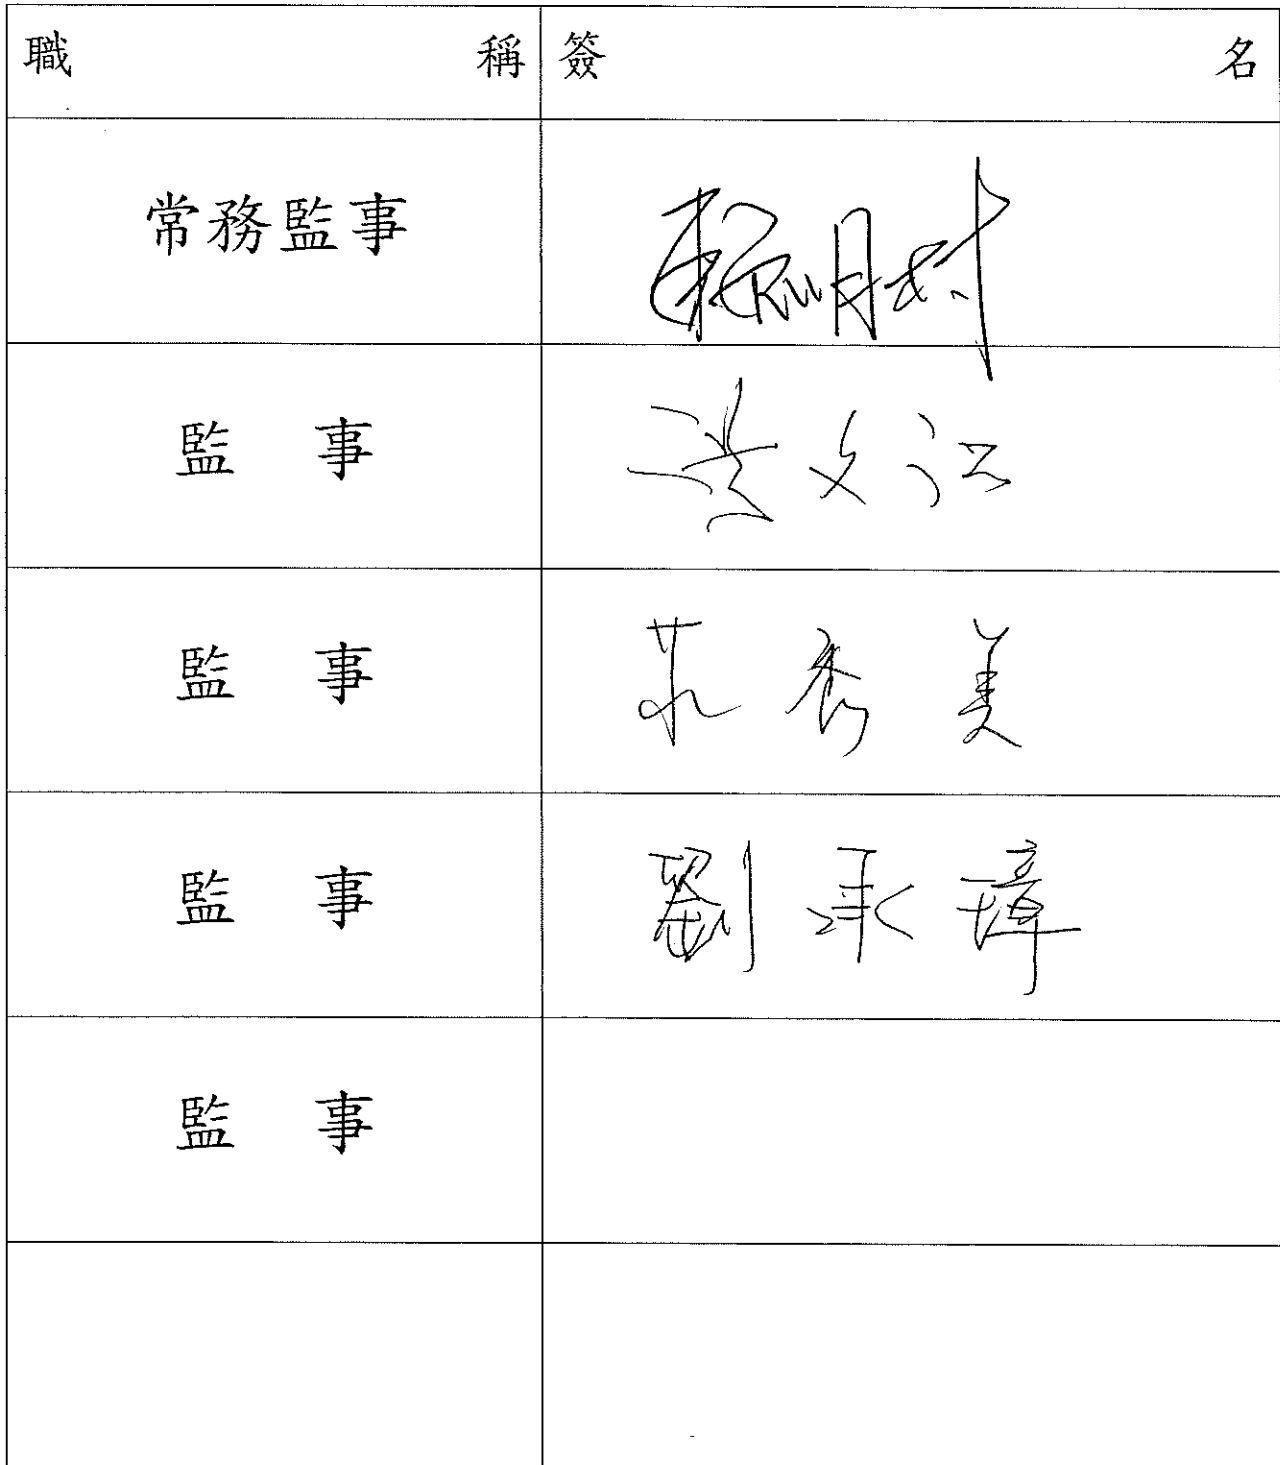 職稱 簽名
常務監事
監事 洪文江
監事 秀美
監事 劉承璋
監事